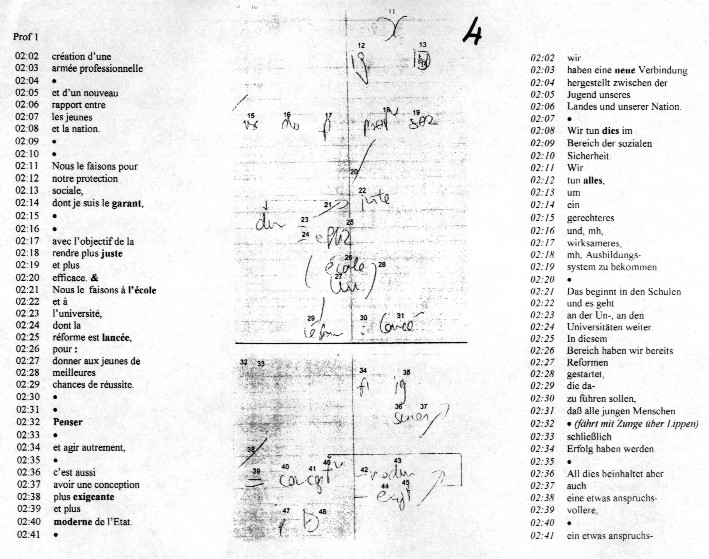 Prof 1
02:02 création d'une
02:03 armée professionnelle
02:04 •
02:05 et d'un nouveau
02:06 rapport entre
02:07 les jeunes
02:08 et la nation.
02:09 •
02:10 •
02:11 Nous le faisons pour
02:12 notre protection
02:13 sociale,
02:14 dont je suis le garant,
02:15 •
02:16 •
02:17 avec l'objectif de la
02:18 rendre plus juste
02:19 et plus
02:20 efficace. &
02:21 Nous le faisons à l'école
02:22 et à
02:23 l'université,
02:24 dont la
02:25 réforme est lancée,
02:26 pour :
02:27 donner aux jeunes de
02:28 meilleures
02:29 chances de réussite.
02:30 •
02:31 •
02:32 Penser
02:33 •
02:34 et agir autrement,
02:35 •
02:36 c'est aussi
02:37 avoir une conception
02:38 plus exigeante
02:39 et plus
02:40 moderne de l'Etat.
02:41 •
4
11
12 13
15 16 17 18 19
20
21 22 juste
23
24 25
26 école
27 Uni 28
29 30 31
32 33
34 35
36 37
38
39 40 41 42 43
44 45
47 48
02:02 wir
02:03 haben eine neue Verbindung
02:04 hergestellt zwischen der
02:05 Jugend unseres
02:06 Landes und unserer Nation.
02:07 •
02:08 Wir tun dies im
02:09 Bereich der sozialen
02:10 Sicherheit.
02:11 Wir
02:12 tun alles,
02:13 um
02:14 ein
02:15 gerechteres
02:16 und, mh,
02:17 wirksameres,
02:18 mh, Ausbildungs-
02:19 system zu bekommen.
02:20 •
02:21 Das beginnt in den Schulen
02:22 und es geht
02:23 an der Un-, an den
02:24 Universitäten weiter.
02:25 In diesem
02:26 Bereich haben wir bereits
02:27 Reformen
02:28 gestartet,
02:29 die da-
02:30 zu führen sollen,
02:31 daß alle jungen Menschen
02:32 • (fährt mit Zunge über Lippen)
02:33 schließlich
02:34 Erfolg haben werden.
02:35 •
02:36 All dies beinhaltet aber
02:37 auch
02:38 eine etwas anspruchs-
02:39 vollere,
02:40 •
02:41 ein etwas anspruchs-